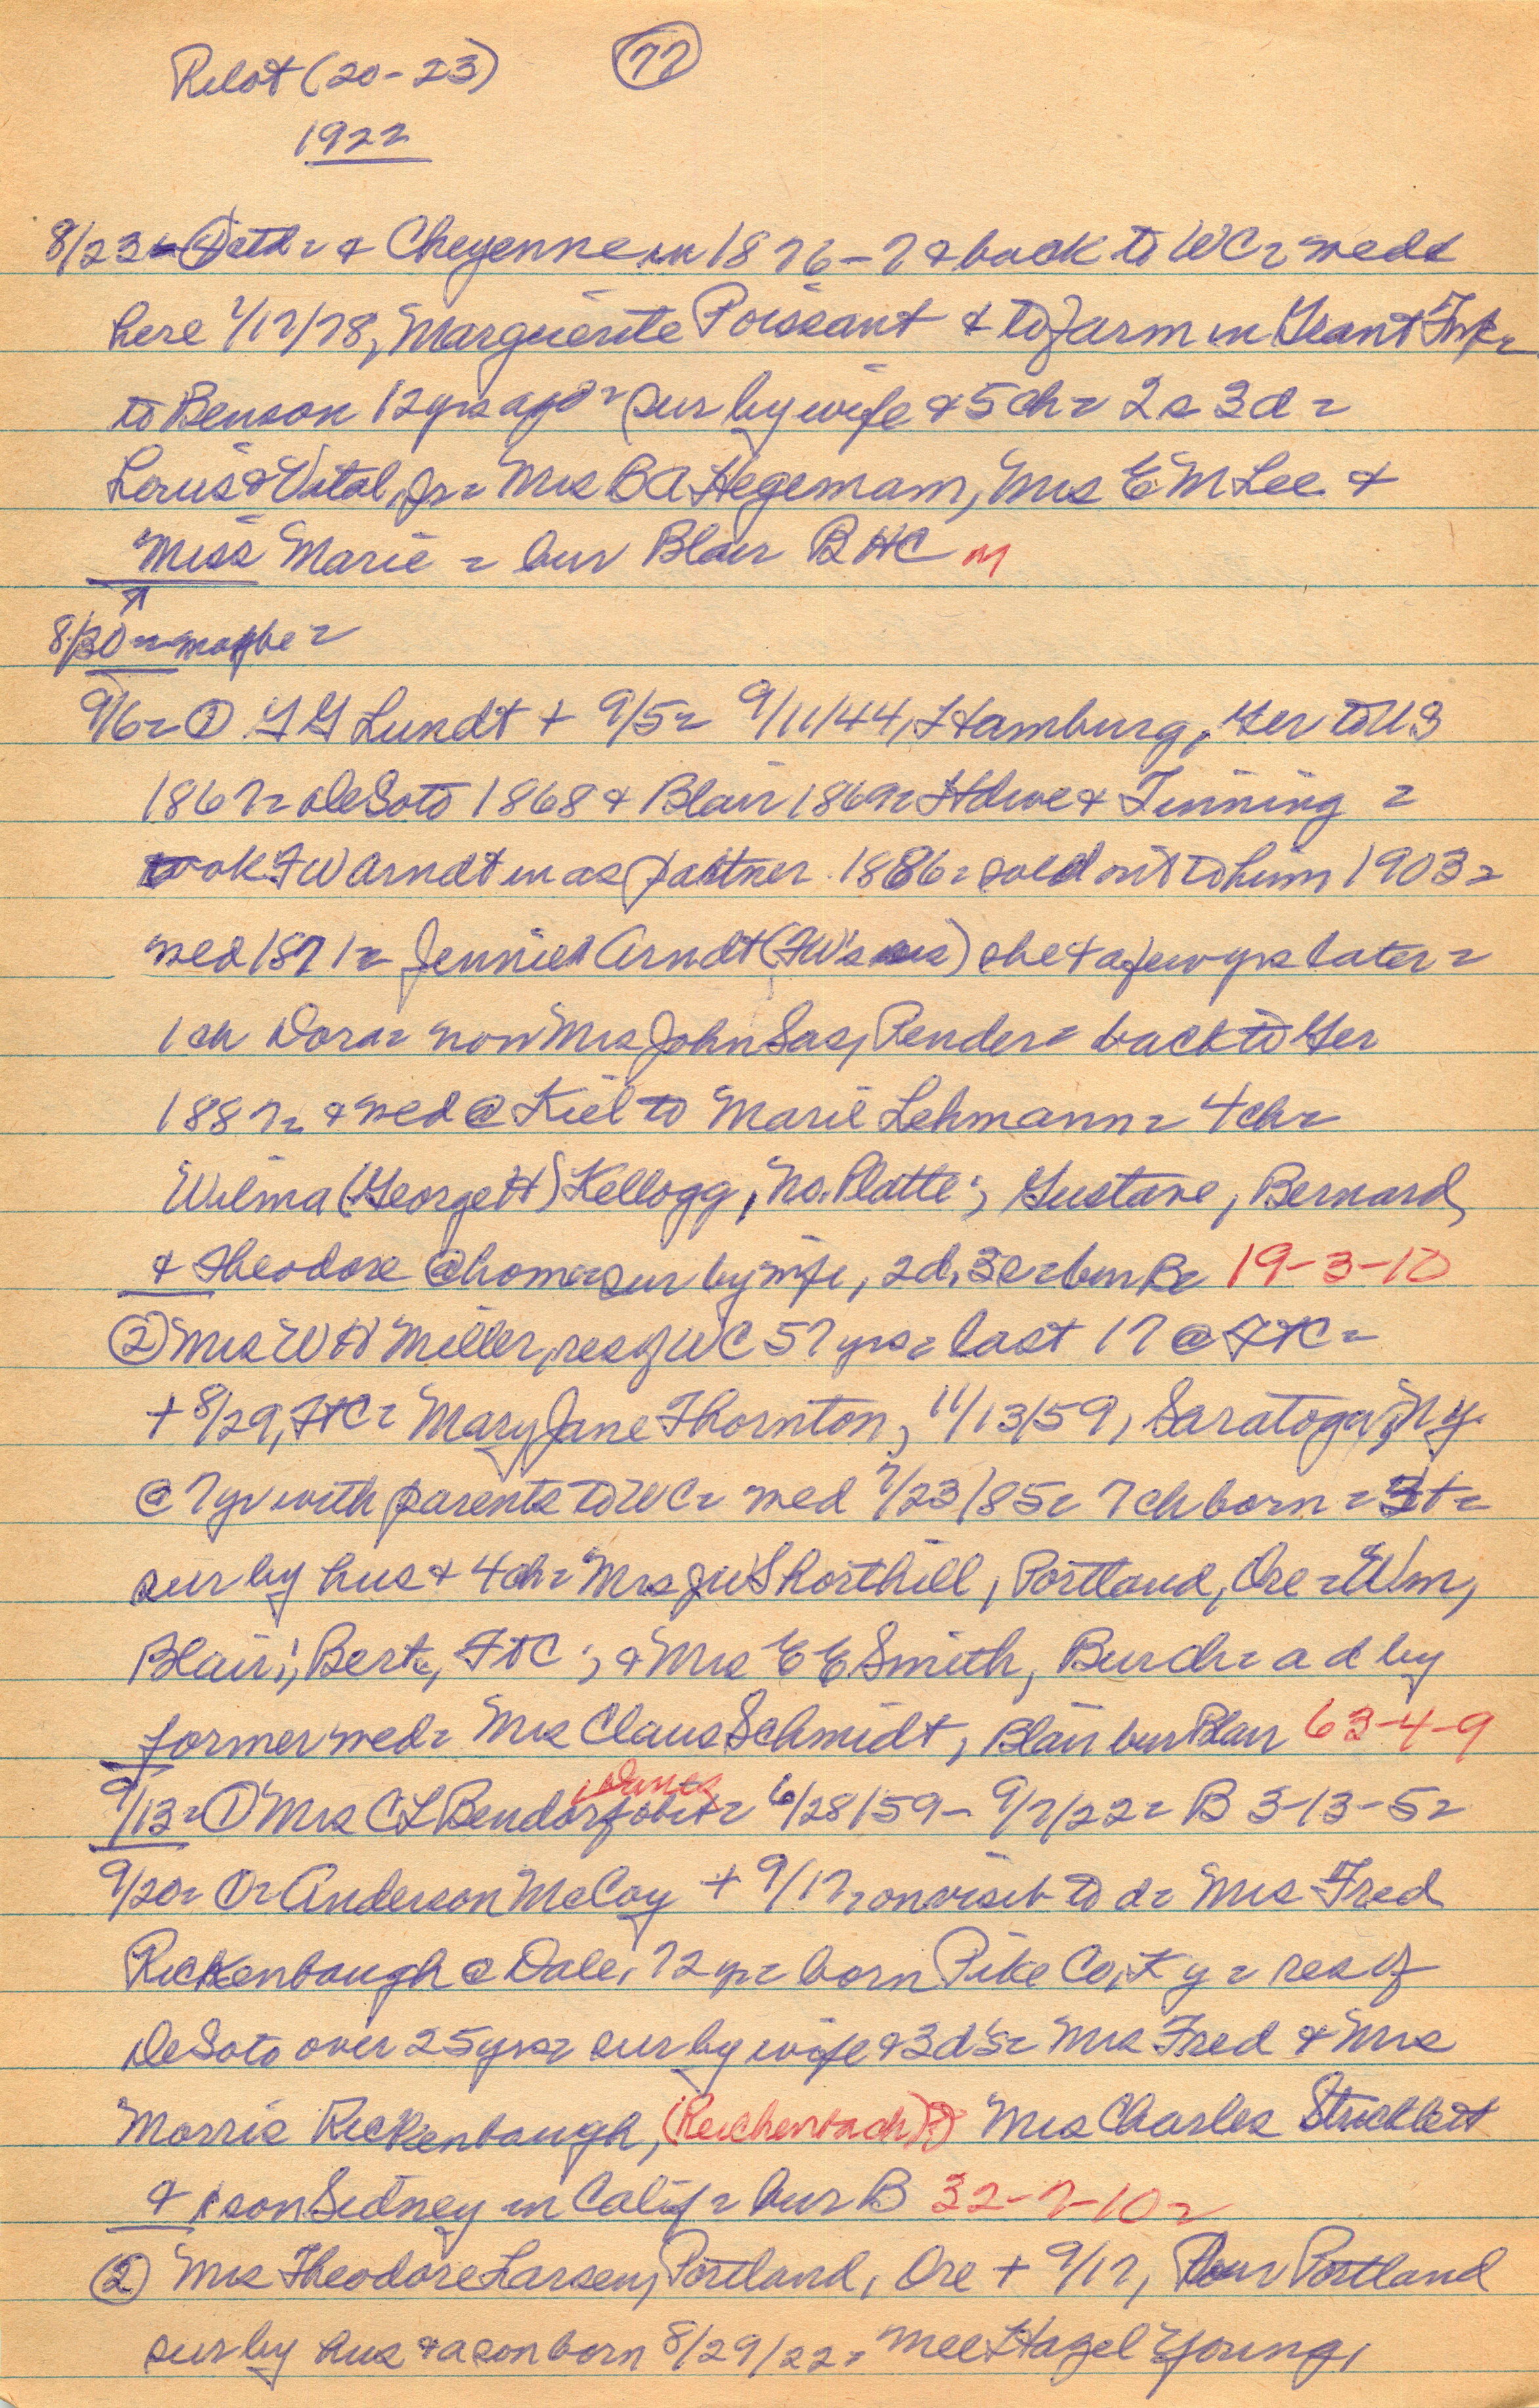 Pilot (20-23) 77
1922
8/23 & Cheyenne in 1876-7 & back to WC = wedd
here 1/17/78, Marguerite Poissant & to farm in Grant Twp =
to Benson 12 yrs ago = sur by wife & 5 ch = 2 s 3 d =
Louis & Vital, Jr = Mrs B A Hegemann, Mrs E M Lee &
Miss Marie = bur Blair B HC M
8/30 = maybe =
9/6 = ① G G Lundt + 9/5 = 9/11/44, Hamburg, Ger to US
1867 = DeSoto 1868 & Blair 1869 = Hdwe & Tinning =
took F W Arndt in as partner 1886 = sold out to him 1903 =
wed 1871 = Jennie Arndt (FW's sis) she + a few yrs later =
1 ch Dora = now Mrs John Sas, Pender = back to Ger
1887 = & wed @ Kiel to Marie Lehmann = 4 ch =
Wilma (George H) Kellogg, No. Platte; Gustave, Bernard,
& Theodore @ home = sur by wife, 2 d, 3 s = bur B = 19-3-10
② Mrs W H Miller, res of WC 57 yrs = last 17 @ FtC =
+ 8/29, FtC = Mary Jane Thornton, 11/13/59, Saratoga, N Y.
@ 7 yr with parents to WC = wed 7/23/85 = 7 ch born = 3 + =
sur by hus & 4 ch = Mrs J W Shorthill, Portland, Ore = Wm,
Blair; Bert, FtC; & Mrs E E Smith, Burch = a d by
former wed = Mrs Claus Schmidt, Blair bur Blair 63-4-9
9/13 = ① Mrs C L Bendorf obit = 6/28/59 - 9/7/22 = B 3-13-5 =
9/20 = ① = Anderson McCoy + 9/17 = on visit to d = Mrs Fred
Rickenbaugh @ Dale, 72 yr = born Pike Co, Ky = res of
DeSoto over 25 yrs = sur by wife & 3 d's = Mrs Fred & Mrs
Morris Rickenbaugh, (Reichenbach)? Mrs Charles Stricklett
& 1 son Sidney in Calif = bur B 32-7-10 =
② Mrs Theodore Larsen, Portland, Ore + 9/17, bur Portland
sur by hus & a son born 8/29/22 = nee Hazel Young,